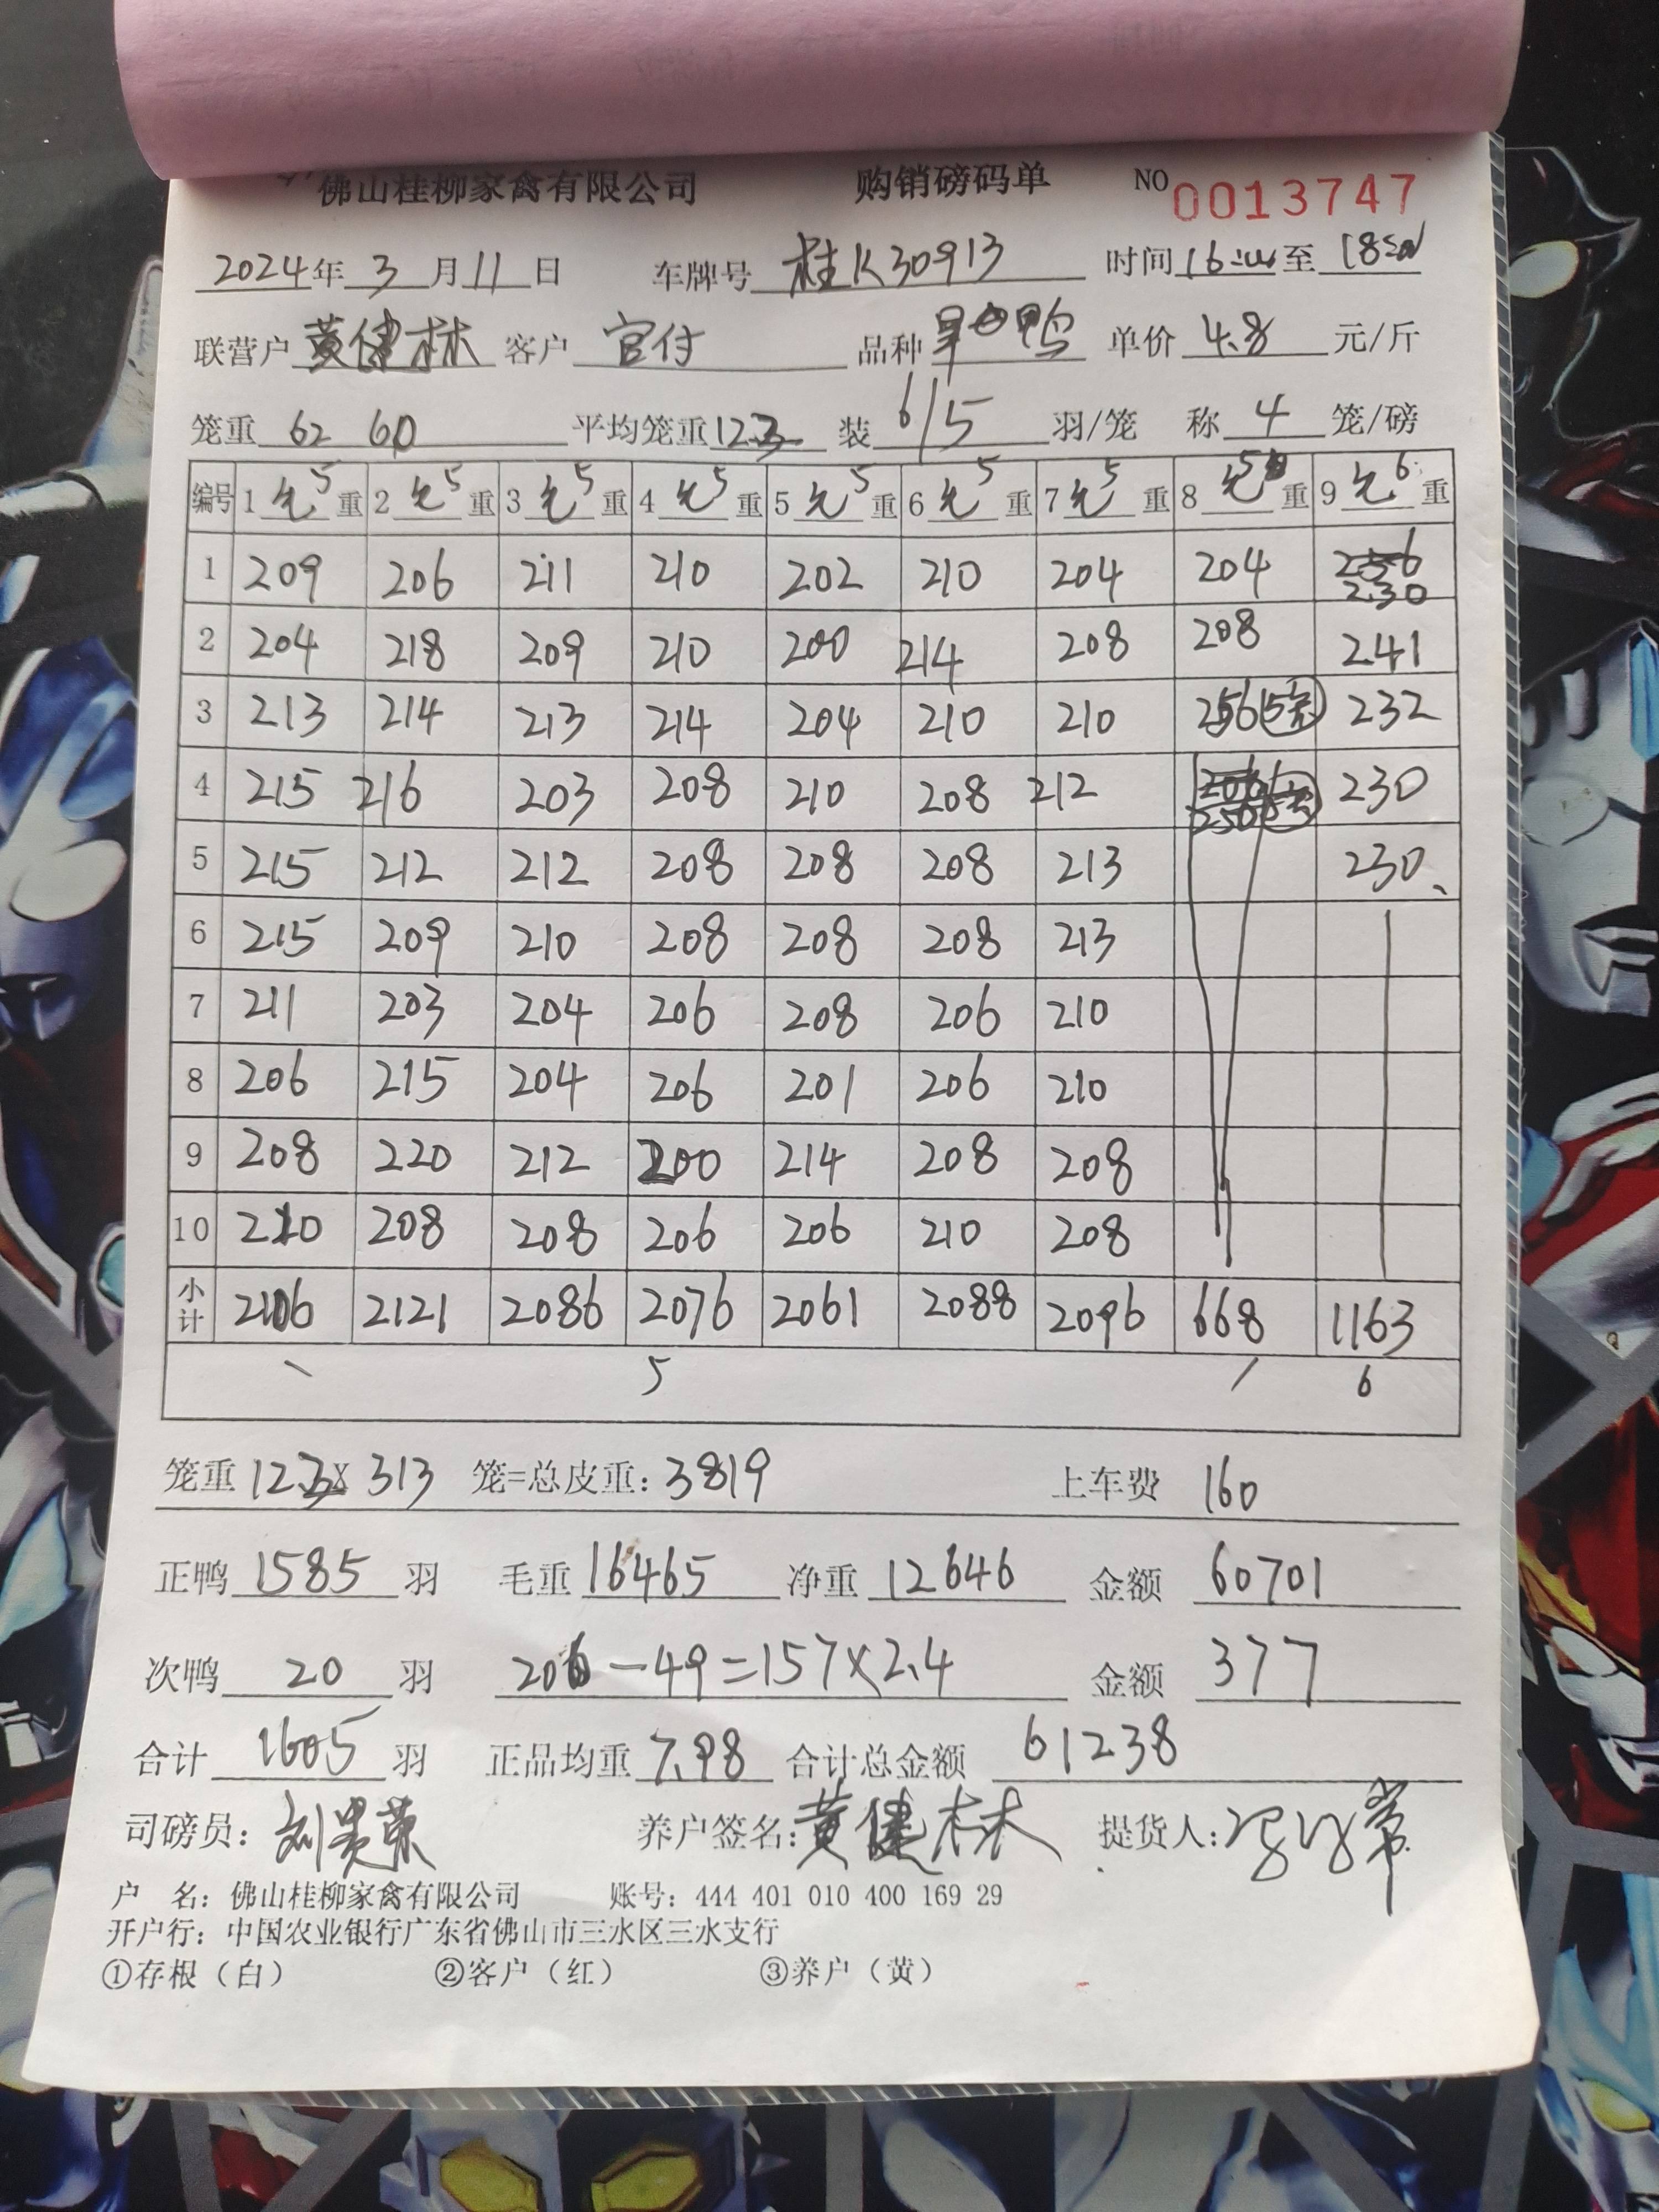 佛山桂柳家禽有限公司 购销磅码单 NO 0013747
2024年 3 月 11 日 车牌号 桂K30913 时间 16: 至 18:
联营户 黄健林 客户 官付 品种 单价 4.8 元/斤
笼重 62 60 平均笼重 12.2 装 6/5 羽/笼 称 4 笼/磅
编号 1 5 重 2 5 重 3 5 重 4 5 重 5 5 重 6 5 重 7 5 重 8 5 重 9 6 重
1 209 206 211 210 202 210 204 204 230
2 204 218 209 210 200 214 208 208 241
3 213 214 213 214 204 210 210 256 232
4 215 216 203 208 210 208 212 230
5 215 212 212 208 208 208 213 230
6 215 209 210 208 208 208 213
7 211 203 204 206 208 206 210
8 206 215 204 206 201 206 210
9 208 220 212 200 214 208 208
10 210 208 208 206 206 210 208
小计 2106 2121 2086 2076 2061 2088 2096 668 1163
5 6
笼重 12.2 X 313 笼=总皮重: 3819 上车费 160
正鸭 1585 羽 毛重 16465 净重 12646 金额 60701
次鸭 20 羽 206-49=157×2.4 金额 377
合计 1605 羽 正品均重 7.98 合计总金额 61238
司磅员: 刘贵荣 养户签名: 黄健林 提货人:
户 名: 佛山桂柳家禽有限公司 账号: 444 401 010 400 169 29
开户行: 中国农业银行广东省佛山市三水区三水支行
①存根（白） ②客户（红） ③养户（黄）